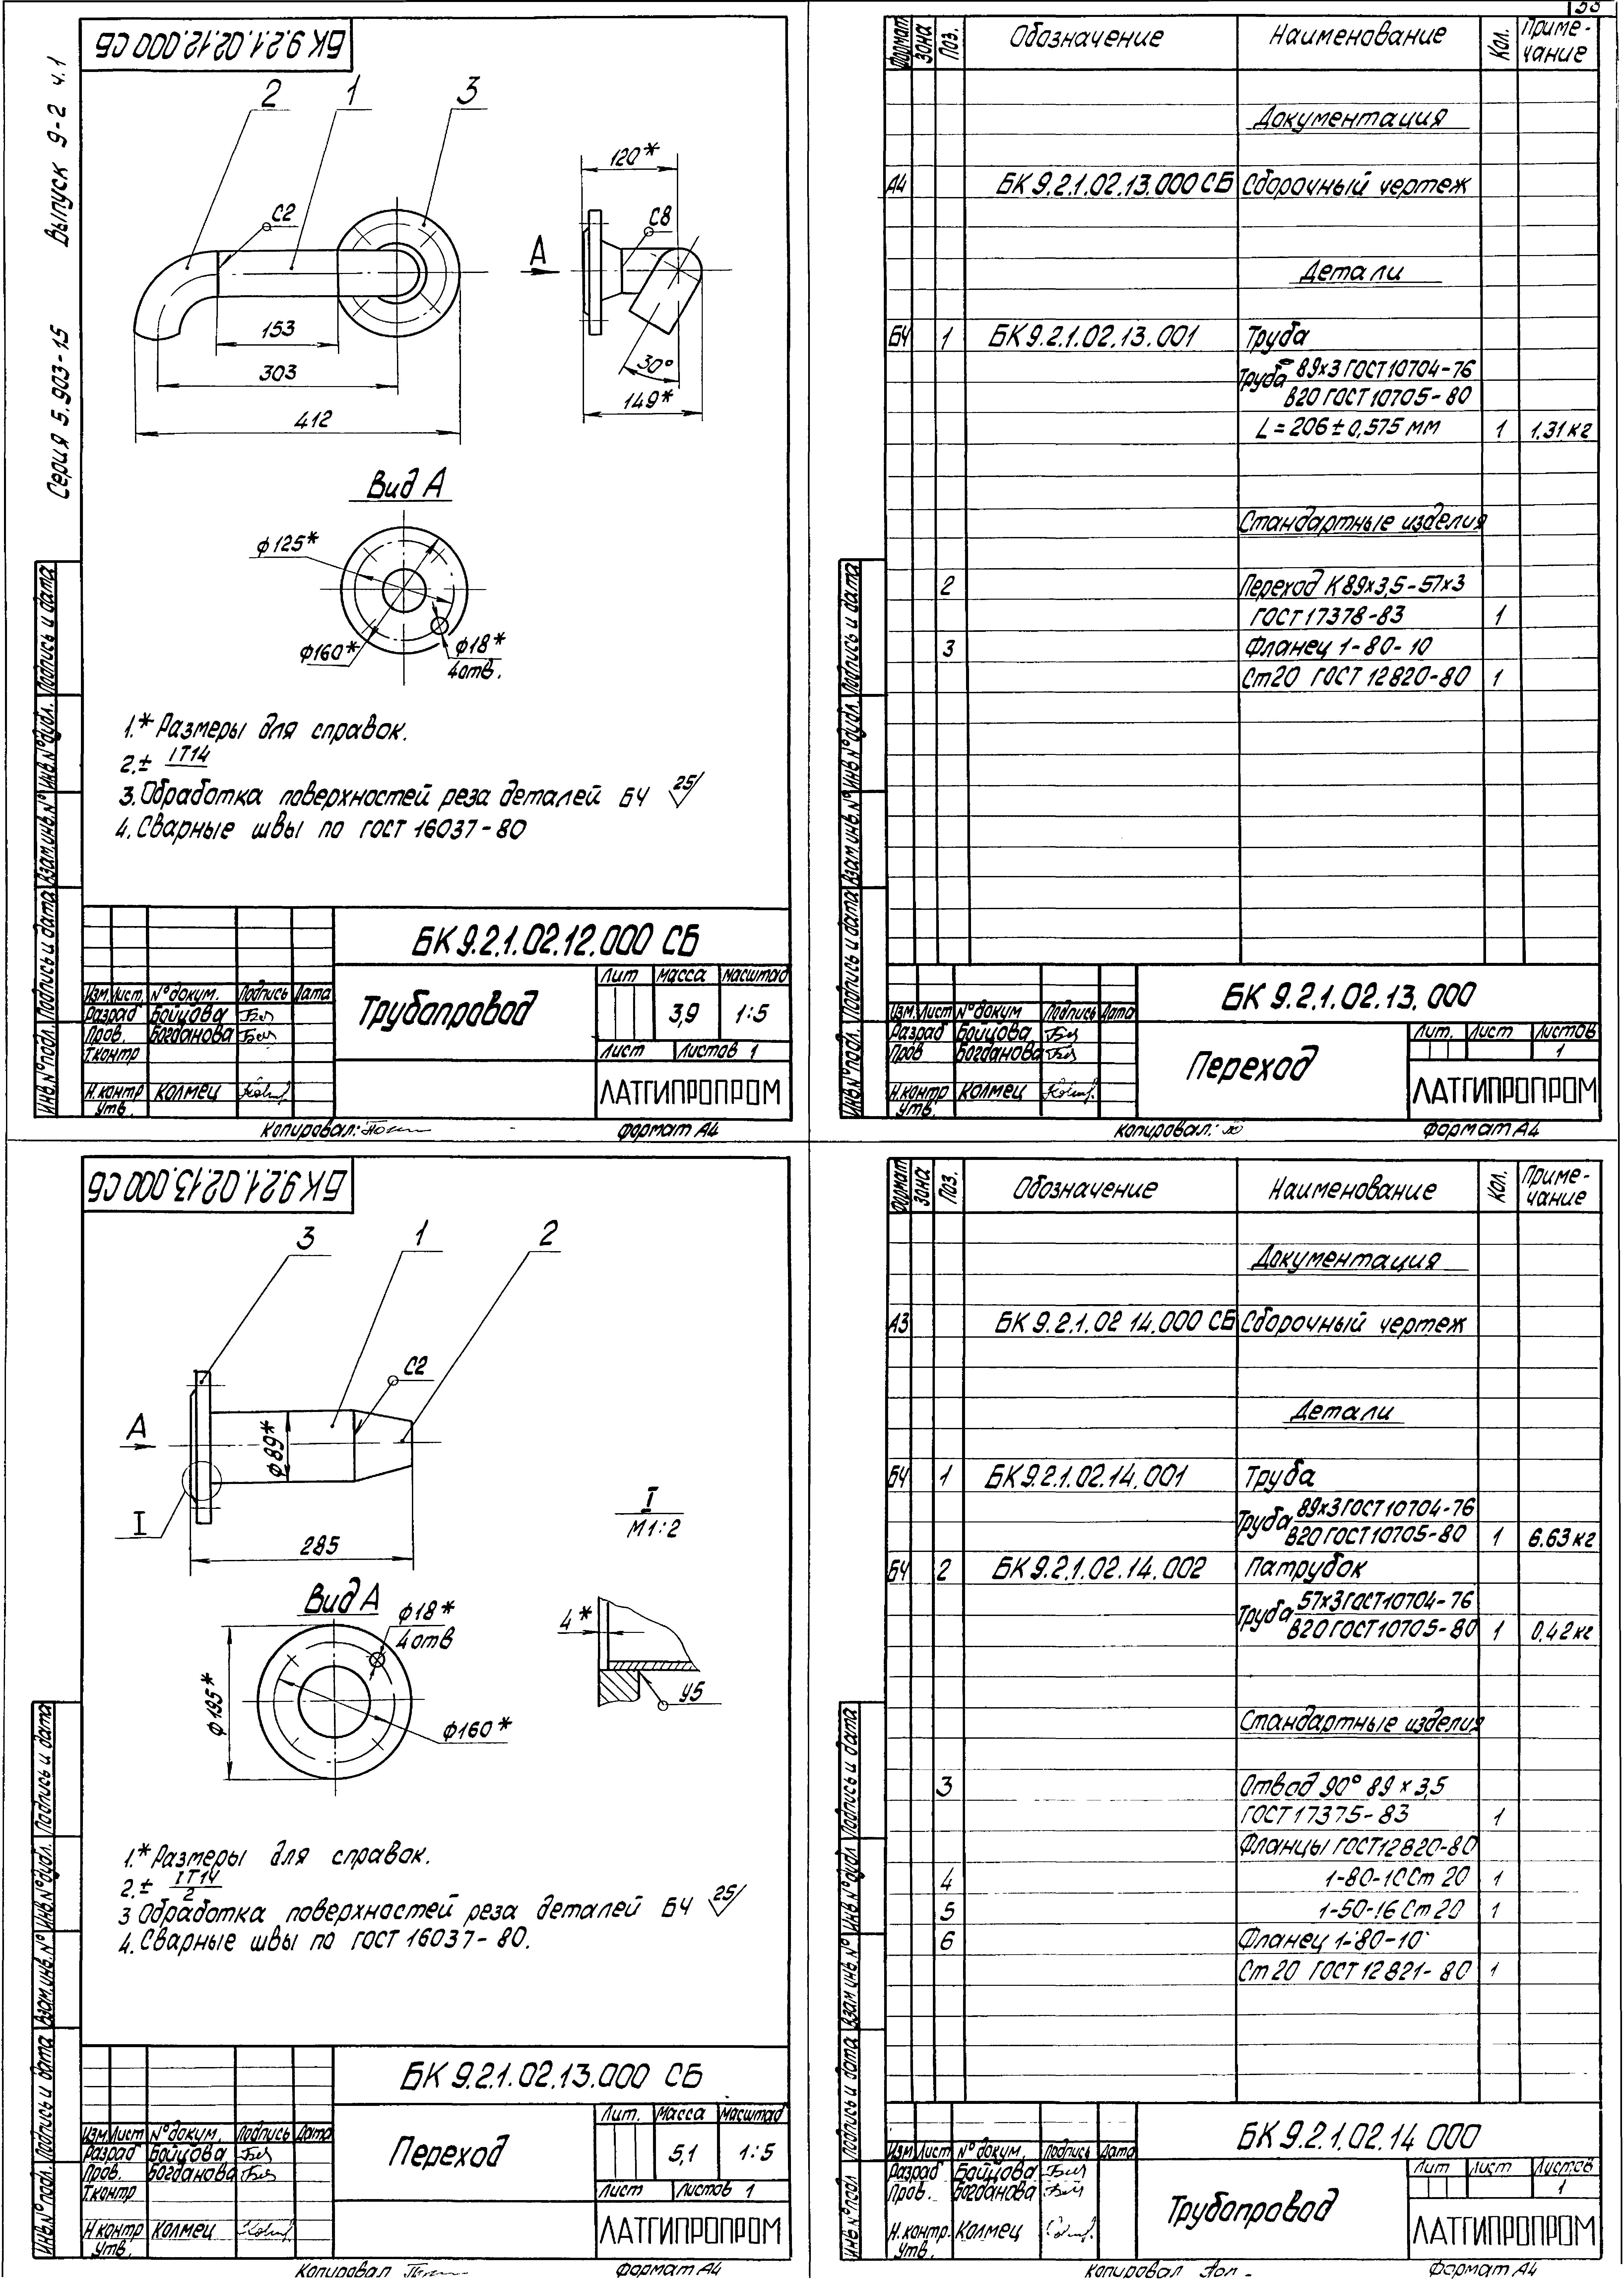 БК 9.2.1.02.12.000 СБ
Серия 5.903-15 Выпуск 9-2 ч.1
2 1 3
С2
153
303
412
120*
С8
А
30°
149*
Вид А
ф125*
ф160*
ф18*
4отв.
1.* Размеры для справок.
2.± IT14
3. Обработка поверхностей реза деталей БЧ 25/
4. Сварные швы по ГОСТ 16037-80
Инв.№подл. Подпись и дата Взам.инв.№ Инв.№дубл. Подпись и дата
БК 9.2.1.02.12.000 СБ
Изм. Лист. № докум. Подпись Дата
Разраб Бойцова
Пров. Богданова
Т.контр
Н.контр Колмец
Утв.
Трубопровод
Лит Масса Масштаб
3,9 1:5
Лист Листов 1
ЛАТГИПРОПРОМ
Копировал: Формат А4
Формат Зона Поз. Обозначение Наименование Кол. Приме-
чание
Документация
А4 БК 9.2.1.02.13.000 СБ Сборочный чертеж
Детали
БЧ 1 БК 9.2.1.02.13.001 Труба
Труба 89х3 ГОСТ 10704-76
В20 ГОСТ 10705-80
L=206±0,575 мм 1 1.31 кг
Стандартные изделия
2 Переход К 89х3,5-57х3
ГОСТ 17378-83 1
3 Фланец 1-80-10
Ст20 ГОСТ 12820-80 1
Инв.№подл. Подпись и дата Взам.инв.№ Инв.№дубл. Подпись и дата
БК 9.2.1.02.13.000
Изм. Лист № докум Подпись Дата
Разраб Бойцова
Пров Богданова
Н.контр Колмец
Утв.
Переход
Лит. Лист Листов
1
ЛАТГИПРОПРОМ
Копировал: Формат А4
БК 9.2.1.02.13.000 СБ
3 1 2
С2
А
ф89*
I
285
I
М1:2
Вид А
ф18*
4отв
ф195*
ф160*
4*
У5
1.* Размеры для справок.
2.± IT14
2
3 Обработка поверхностей реза деталей БЧ 25/
4. Сварные швы по ГОСТ 16037-80.
Инв.№подл. Подпись и дата Взам.инв.№ Инв.№дубл. Подпись и дата
БК 9.2.1.02.13.000 СБ
Изм Лист № докум. Подпись Дата
Разраб Бойцова
Пров. Богданова
Т.контр
Н контр Колмец
Утв.
Переход
Лит. Масса Масштаб
5,1 1:5
Лист Листов 1
ЛАТГИПРОПРОМ
Копировал Формат А4
Формат Зона Поз. Обозначение Наименование Кол. Приме-
чание
Документация
А3 БК 9.2.1.02 14.000 СБ Сборочный чертеж
Детали
БЧ 1 БК 9.2.1.02.14.001 Труба
Труба 89х3 ГОСТ 10704-76
В20 ГОСТ 10705-80 1 6.63 кг
БЧ 2 БК 9.2.1.02.14.002 Патрубок
Труба 57х3 ГОСТ 10704-76
В20 ГОСТ 10705-80 1 0.42 кг
Стандартные изделия
3 Отвод 90° 89 х 3,5
ГОСТ 17375-83 1
Фланцы ГОСТ 12820-80
4 1-80-10 Ст 20 1
5 1-50-16 Ст 20 1
6 Фланец 1-80-10
Ст 20 ГОСТ 12821-80 1
Инв.№подл Подпись и дата Взам.инв.№ Инв.№дубл Подпись и дата
БК 9.2.1.02.14 000
Изм Лист № докум. Подпись Дата
Разраб Бойцова
Пров. Богданова
Н.контр. Колмец
Утв.
Трубопровод
Лит Лист Листов
1
ЛАТГИПРОПРОМ
Копировал Формат А4